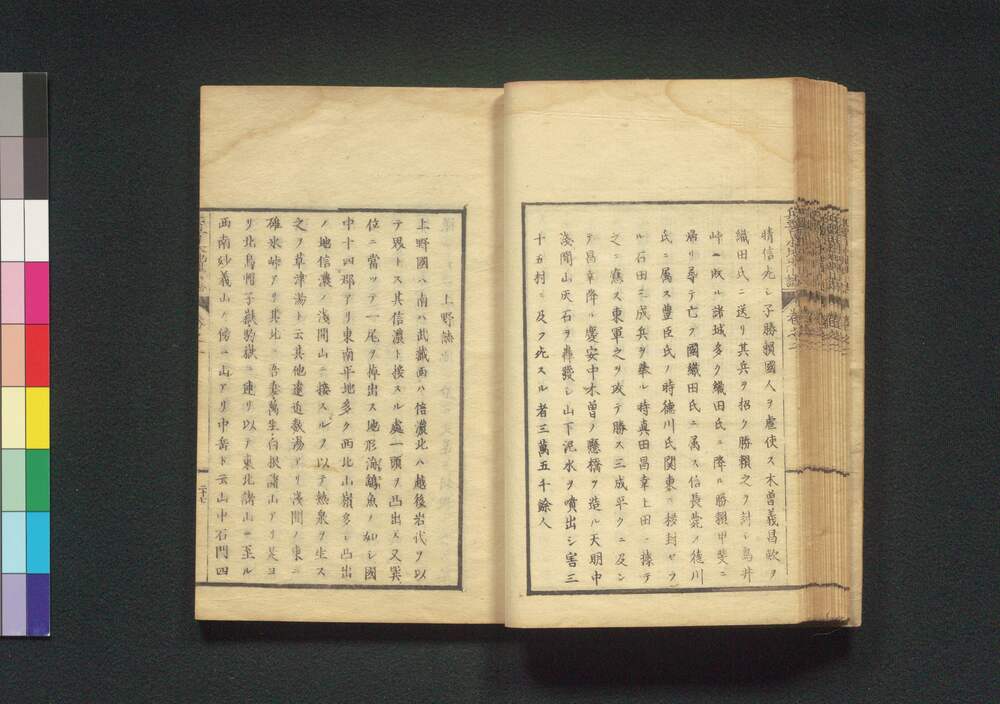 晴信死シ子勝頼國人ヲ虐使ス木曽義昌欵ヲ
織田氏ニ送リ其兵ヲ招ク勝頼之ヲ討シ鳥井
峠ニ敗ル諸城多ク織田氏ニ降ル勝頼甲斐ニ
帰リ尋テ亡フ國織田氏ニ属ス信長薨ノ後徳川
氏ニ属ス豊臣氏ノ時徳川氏関東ニ移封セラ
ル石田三成兵ヲ挙ル時真田昌幸上田ニ據テ
之ニ應ス東軍之ヲ攻テ勝ス三成平クニ及ン
テ昌幸降ル慶安中木曽ノ懸橋ヲ造ル天明中
浅間山灰石ヲ轟發シ山下泥水ヲ噴出シ害三
十五村ニ及フ死スル者三萬五千餘人
上野
上野國ハ南ハ武藏西ハ信濃北ハ越後岩代ヲ以
テ界トス其信濃ト接スル處一頭ヲ凸出ス又巽
位ニ當ッテ一尾ヲ掉出ス地形海鷂魚ノ如シ國
中十四郡アリ東南平地多ク西北山嶺多シ凸出
ノ地信濃ノ浅間山ニ接スルヲ以テ熱泉ヲ生ス
之ヲ草津湯ト云其他遠近数湯アリ浅間ノ東ニ
碓氷峠アリ其北ニ吾妻萬生白根諸山アリ是ヨ
リ北烏帽子嶽駒嶽ニ連リ以テ東北諸山ニ至ル
西南妙義山ノ傍ニ山アリ中岳ト云山中石門四
二十七